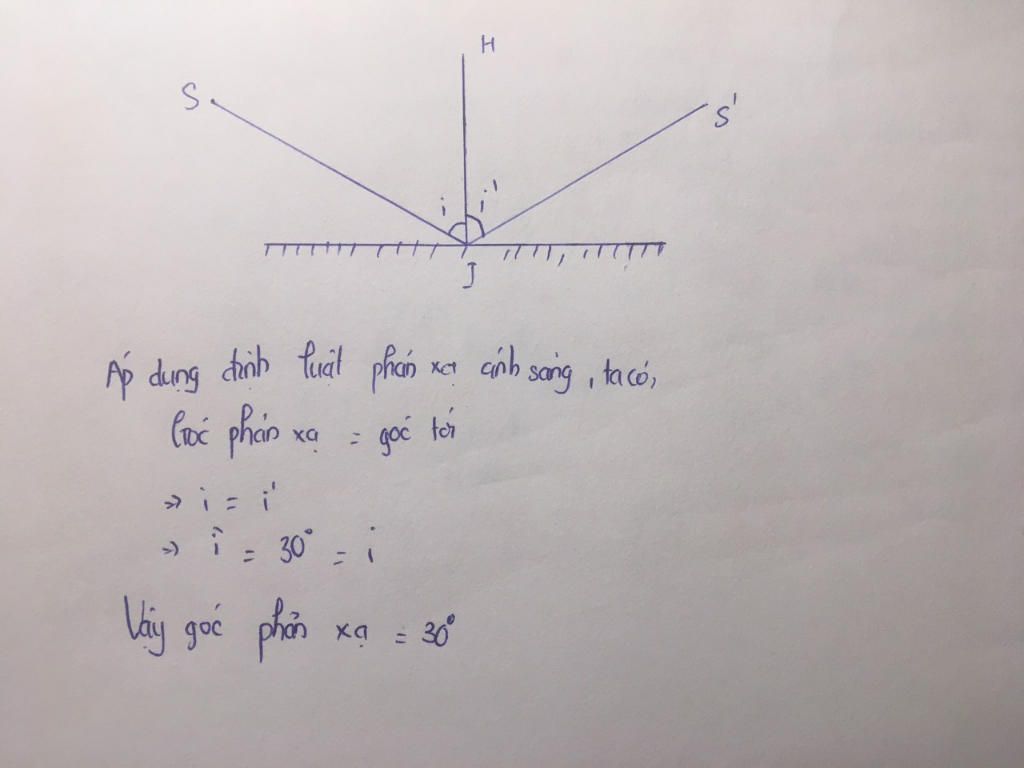 H
S
S'
i i'
J
Áp dụng định luật phản xạ ánh sáng, ta có,
Góc phản xạ = góc tới
=> i = i'
=> i' = 30° = i
Vậy góc phản xạ = 30°